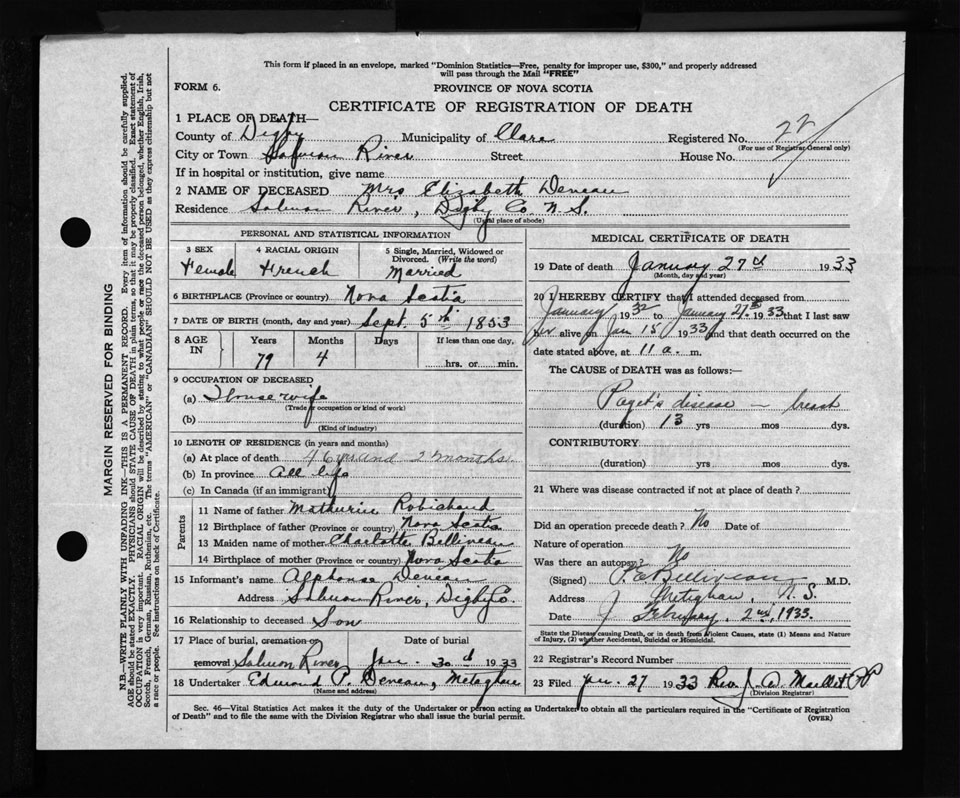 This form if placed in an envelope, marked "Dominion Statistics—Free, penalty for improper use, $300," and properly addressed
will pass through the Mail "FREE"
FORM 6.
PROVINCE OF NOVA SCOTIA
CERTIFICATE OF REGISTRATION OF DEATH
1 PLACE OF DEATH—
County of Digby Municipality of Clare Registered No. 22
(For use of Registrar General only)
City or Town Salmon River Street House No.
If in hospital or institution, give name
2 NAME OF DECEASED Mrs Elizabeth Deveau
Residence Salmon River, Digby Co. N.S.
(Usual place of abode)
PERSONAL AND STATISTICAL INFORMATION
3 SEX 4 RACIAL ORIGIN 5 Single, Married, Widowed or
Divorced. (Write the word)
Female French Married
6 BIRTHPLACE (Province or country) Nova Scotia
7 DATE OF BIRTH (month, day and year) Sept. 5th 1853
8 AGE IN Years Months Days If less than one day,
79 4 hrs. or min.
9 OCCUPATION OF DECEASED
(a) House wife
(Trade or occupation or kind of work)
(b)
(Kind of industry)
10 LENGTH OF RESIDENCE (in years and months)
(a) At place of death 46 yrs and 2 months.
(b) In province all life
(c) In Canada (if an immigrant)
Parents
11 Name of father Mathurin Robichaud
12 Birthplace of father (Province or country) Nova Scotia
13 Maiden name of mother Charlotte Belliveau
14 Birthplace of mother (Province or country) Nova Scotia
15 Informant's name Alphonse Deveau
Address Salmon River, Digby Co.
16 Relationship to deceased Son
17 Place of burial, cremation or Date of burial
removal Salmon River Jan. 30d 1933
18 Undertaker Edmond P. Deveau, Meteghan
(Name and address)
MEDICAL CERTIFICATE OF DEATH
19 Date of death January 27th 1933
(Month, day and year)
20 I HEREBY CERTIFY that I attended deceased from
January 1932 to January 27th 1933 that I last saw
her alive on Jan 15 1933 and that death occurred on the
date stated above, at 11 a. m.
The CAUSE of DEATH was as follows:—
Paget's disease — breast
(duration) 13 yrs mos dys.
CONTRIBUTORY
(duration) yrs mos dys.
21 Where was disease contracted if not at place of death?
Did an operation precede death? No Date of
Nature of operation
Was there an autopsy? No
(Signed) Belliveau M.D.
Address Meteghan, N.S.
Date February 2nd, 1933.
State the Disease causing Death, or in death from Violent Causes, state (1) Means and Nature
of Injury, (2) whether Accidental, Suicidal or Homicidal.
22 Registrar's Record Number
23 Filed Jan. 27 1933 Rev. J. A. Maillet
(Division Registrar)
Sec. 46—Vital Statistics Act makes it the duty of the Undertaker or person acting as Undertaker to obtain all the particulars required in the "Certificate of Registration
of Death" and to file the same with the Division Registrar who shall issue the burial permit.
(OVER)
MARGIN RESERVED FOR BINDING
N.B.—WRITE PLAINLY WITH UNFADING INK—THIS IS A PERMANENT RECORD. Every item of information should be carefully supplied.
AGE should be stated EXACTLY. PHYSICIANS should STATE CAUSE OF DEATH in plain terms, so that it may be properly classified. Exact statement of
OCCUPATION is very important. RACIAL ORIGIN will be described by stating to what people or race the deceased person belonged, whether English, Irish,
Scotch, French, German, Russian, Ruthenian, etc. The terms "AMERICAN" or "CANADIAN" SHOULD NOT BE USED as they express citizenship but not
a race or people. See instructions on back of Certificate.